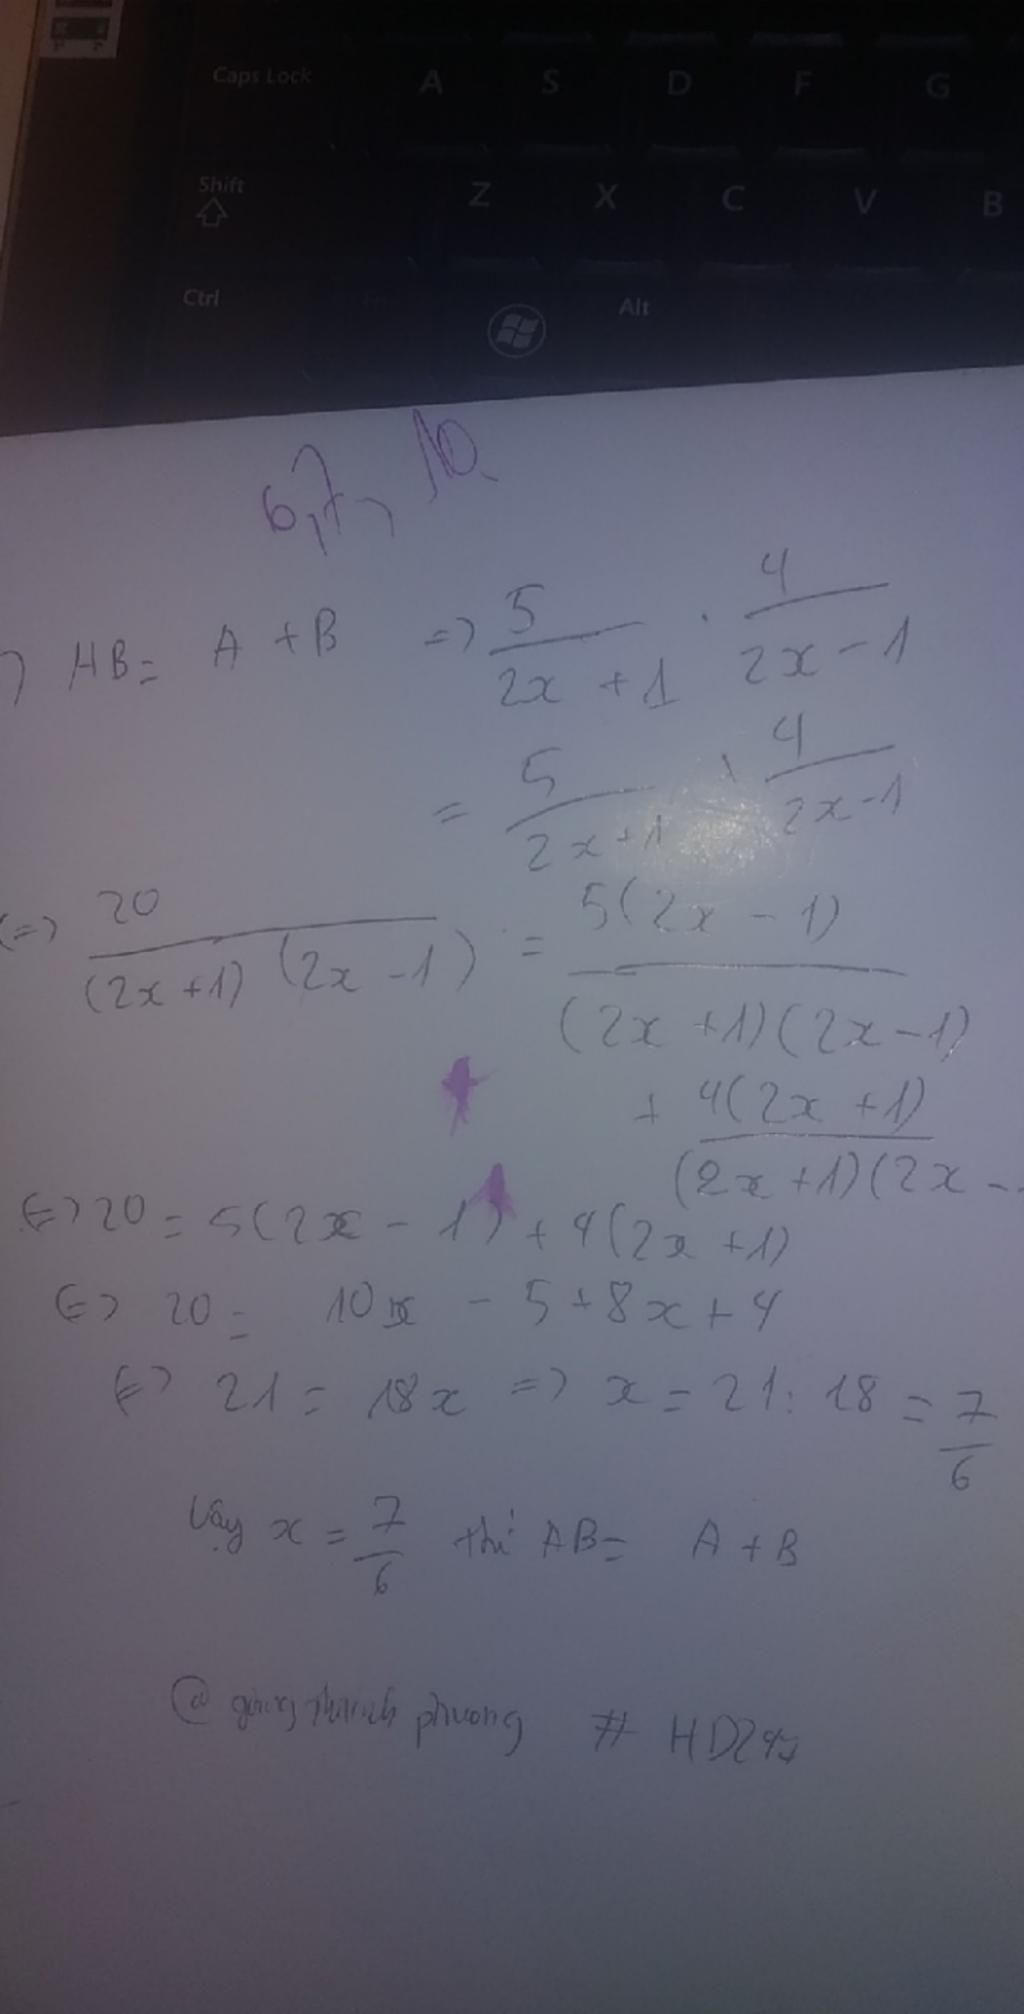 Caps Lock A S D F G
Shift Z X C V B
Ctrl Alt
6,7, 10
) AB = A + B => 5/(2x + 1) . 4/(2x - 1)
= 5/(2x + 1) + 4/(2x - 1)
<=> 20/((2x + 1)(2x - 1)) = 5(2x - 1)/((2x + 1)(2x - 1))
+ 4(2x + 1)/((2x + 1)(2x -
<=> 20 = 5(2x - 1) + 4(2x + 1)
<=> 20 = 10x - 5 + 8x + 4
<=> 21 = 18x => x = 21 : 18 = 7/6
Vậy x = 7/6 thì AB = A + B
@ phuong # HD247